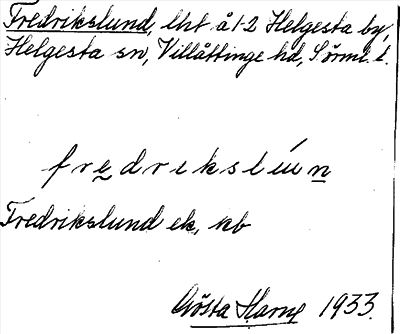 Fredrikslund, lht å 1-2 Helgesta by,
Helgesta sn, Villåttinge hd, Sörml. l.
fredrekslún
Fredrikslund ek, kb
Gösta Harne 1933.